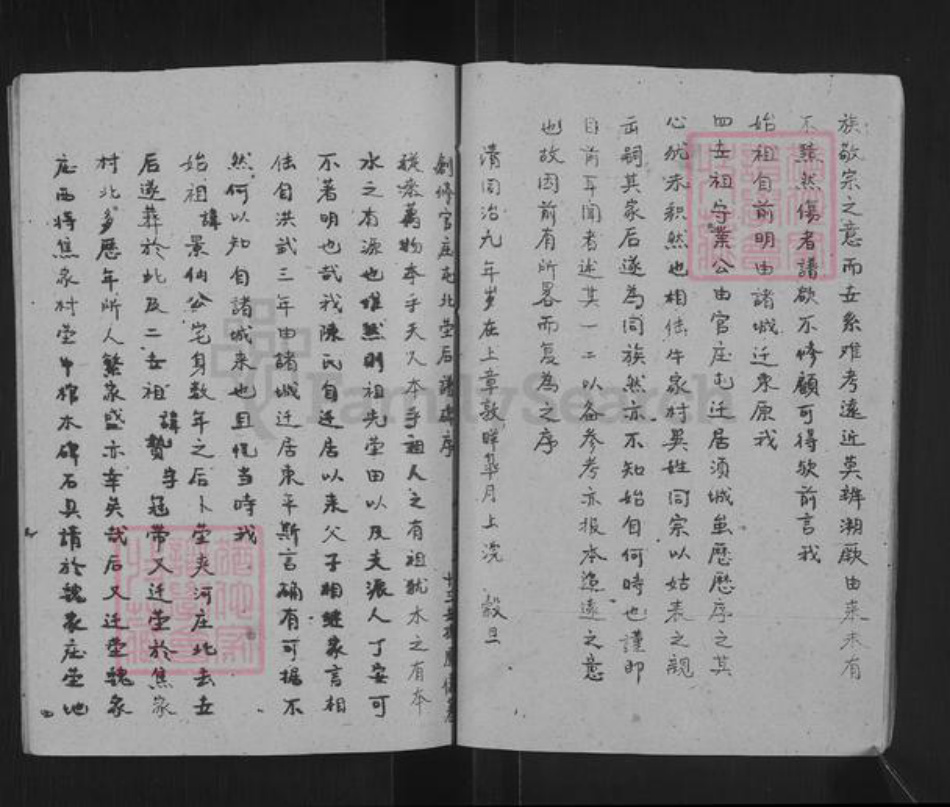 族敬宗之意而世系难考遠近莫辨溯厥由来未有
不黯然傷者譜欲不修顧可得欤前言我
始祖自前明由諸城迁東原我
四世祖守業公由官庄屯迁居須城虽歷歷序之其
心犹未积然也相传牛家村吴姓同宗以姑表之親
出嗣其家后遂為同族然亦不知始自何時也謹即
目前耳聞者述其一二以备参考亦报本追遠之意
也故因前有所畧而复為之序
清同治九年岁在上章敦牂皋月上浣 穀旦
創修官庄屯北塋后譜碑序 十三世孫
萬物本乎天人本乎祖人之有祖犹水之有本
水之有源也虽然則祖先塋田以及支派人丁安可
不著明也哉我陳氏自迁居以来父子相継家言相
传自洪武三年由諸城迁居東平斯言确有可据不
然何以知自諸城来也且忆当時我
始祖諱景仙公宅身数年之后卜塋夹河庄北去世
后遂葬於此及二世祖諱贄字冠带又迁塋於焦家
村北多歷年所人繁家盛亦幸矣哉后又迁塋魏家
庄西将焦家村塋中棺木碑石具請於魏家庄塋地
FamilySearch